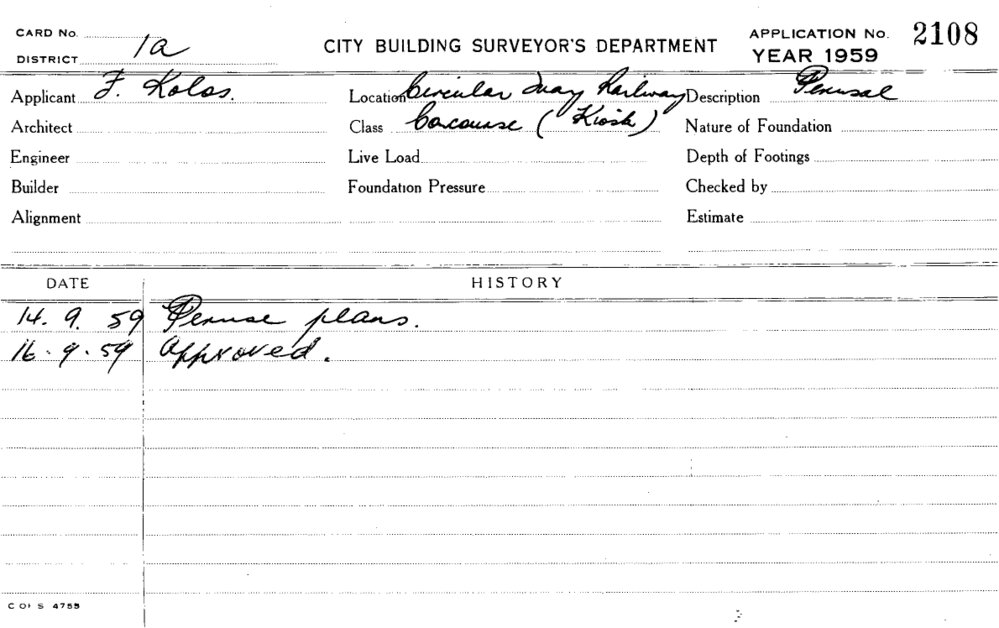 CARD No.
CITY BUILDING SURVEYOR'S DEPARTMENT
APPLICATION No. 2108
DISTRICT 1a
YEAR 1959
Applicant F. Kolos.
Location Circular Quay Railway
Description Perusal
Architect
Class Concourse (Kiosk)
Nature of Foundation
Engineer
Live Load
Depth of Footings
Builder
Foundation Pressure
Checked by
Alignment
Estimate
DATE HISTORY
14. 9. 59 Peruse plans.
16. 9. 59 Approved.
C OF S 4755